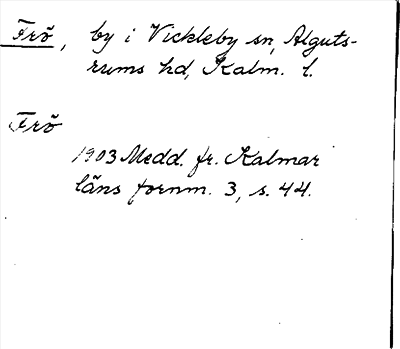 Frö, by i Vickleby sn, Alguts-
rums hd, Kalm. l.
Frö
1903 Medd. fr. Kalmar
läns fornm. 3, s. 44.